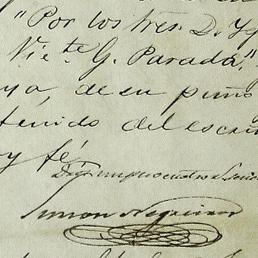 "Por los tres. D. Yg
Vic.te G. Parada".
ya, de su puño
tenido del escri
y fé,
Simon Negreiros